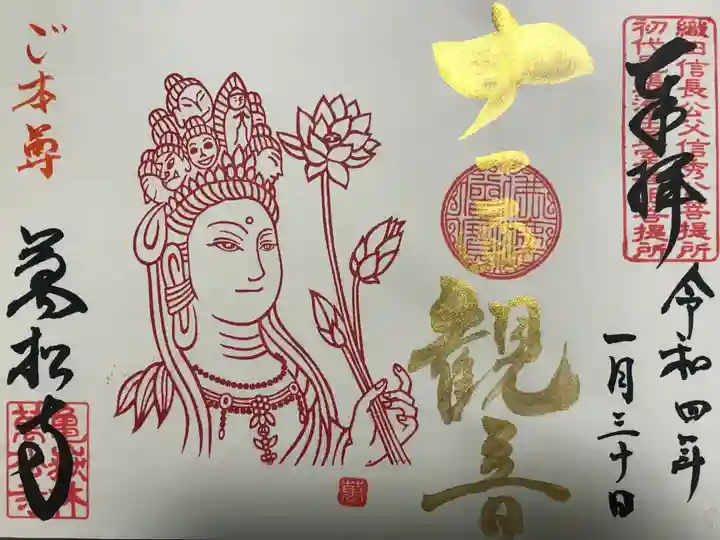 織田信長公父信秀公菩提所
初代
菩提所
奉拝
令和四年
一月三十日
十一面
観音
ご本尊
萬松寺
亀嶽林
萬松寺
萬